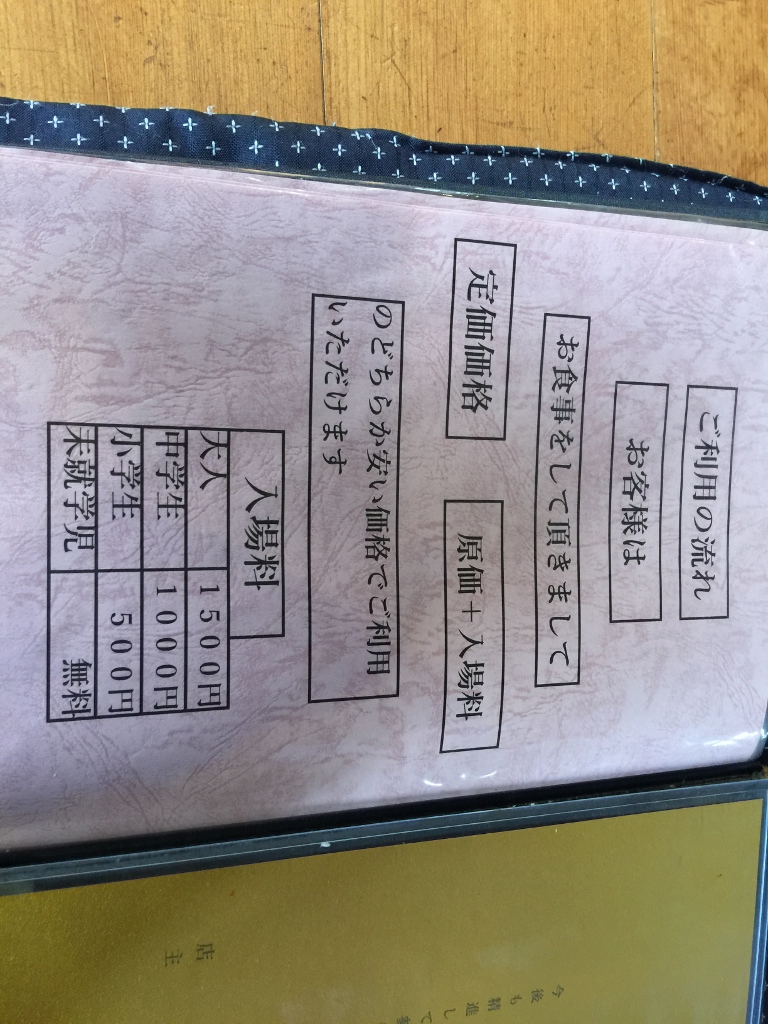 ご利用の流れ
お客様は
お食事をして頂きまして
定価価格
原価＋入場料
のどちらか安い価格でご利用
いただけます
入場料
大人 1500円
中学生 1000円
小学生 500円
未就学児 無料
今後も精進して
店主